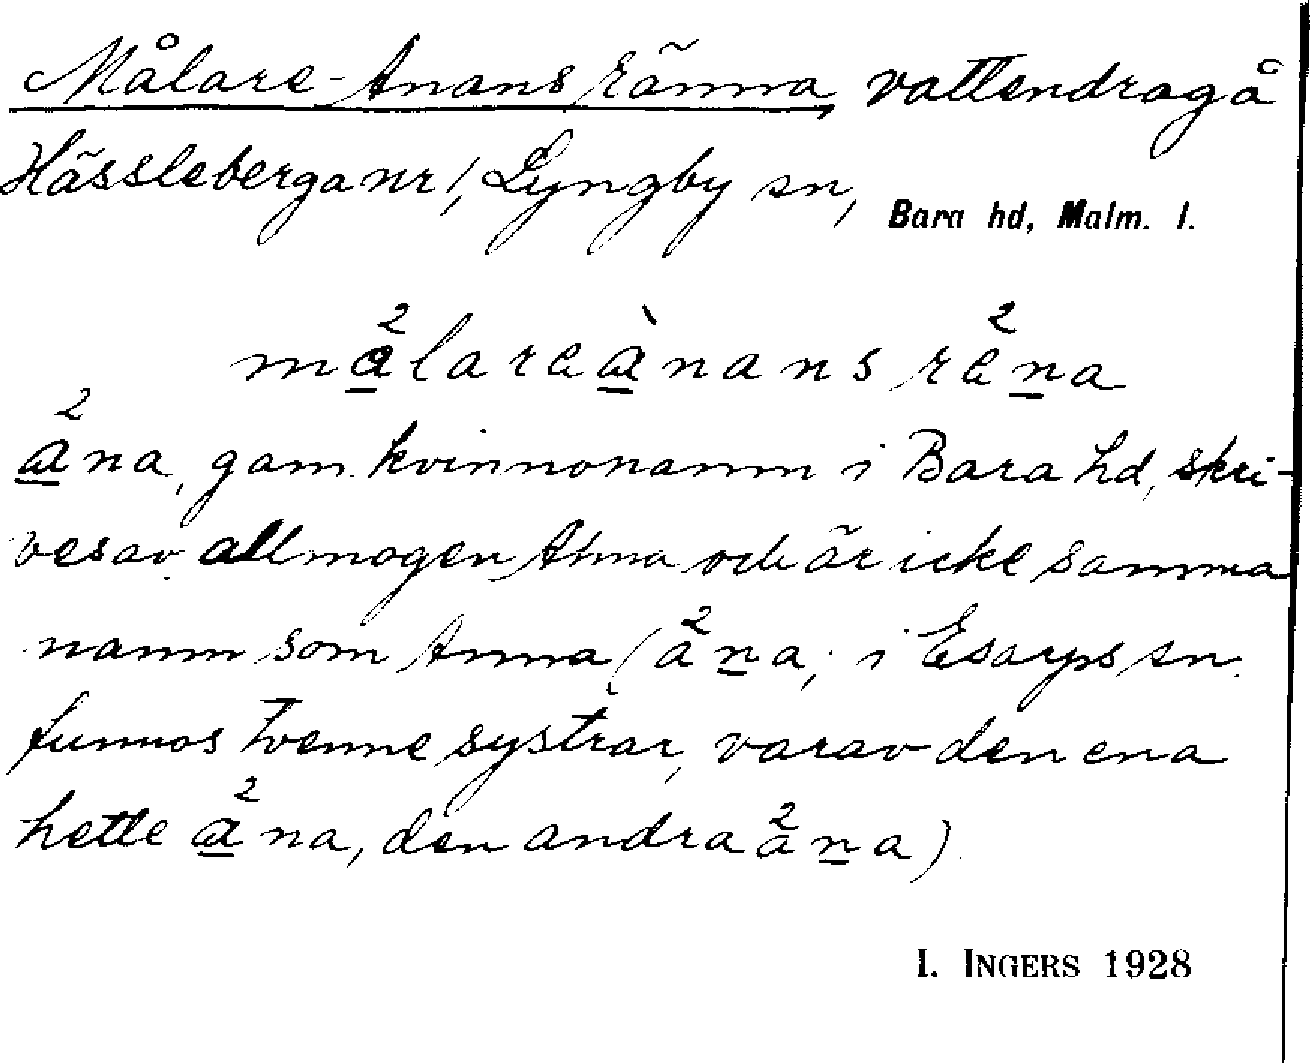 Målare-Anans ränna, vattendrag å
Hässleberga nr 1, Lyngby sn, Bara hd, Malm. l.
må̱²lareà̱nans re²ṉa
a̱²na, gam. kvinnonamn i Bara hd, skri-
ves av allmogen Ahna och är icke samma
namn som Anna (a²ṉa; i Esarps sn.
funnos tvenne systrar, varav den ena
hette a̱²na, den andra a²ṉa)
I. INGERS 1928